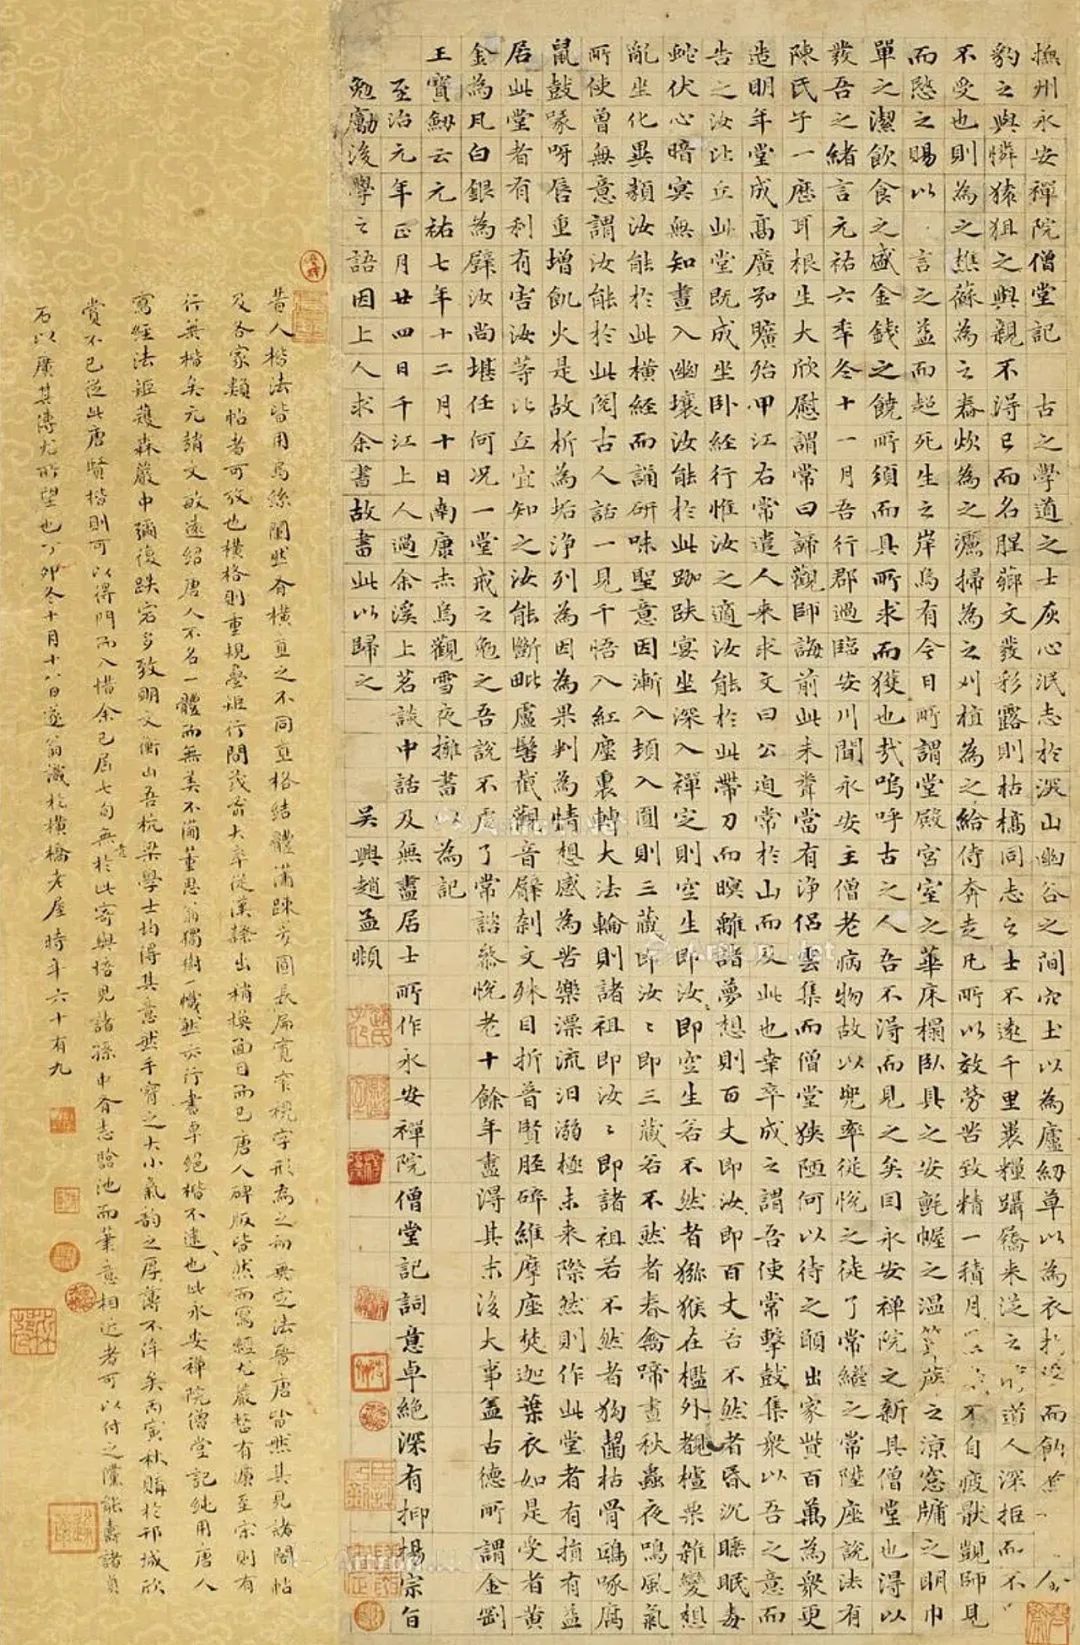 撫州永安禪院僧堂記　古之學道之士灰心泯志於深山幽谷之間穴土以為廬紉草以為衣
豹之與憐猿狙之與親不得已而名腥薌文彩發露則枯槁同志之士不遠千里裹糧躡屩來從之道人深拒而不
不受也則為之樵蘇為之舂炊為之灑掃為之刈植為之給侍奔走凡所以效勞苦致精一積月不自疲厭觀師見
而愍之賜以言之益而超死生之岸烏有今日所謂堂殿宮室之華床榻臥具之安氈幄之溫簟席之涼窓牖之明巾
單之潔飲食之盛金錢之饒所須而具所求而獲也哉嗚呼古之人吾不得而見之矣因永安禪院之新其僧堂也得以
發吾之緒言元祐六年冬十一月吾行郡過臨安川聞永安主僧老病物故以兜率從悅之徒了常繼之常陞座說法有
陳氏子一歷耳根生大欣慰謂常曰諦觀師誨前此未聞當有淨侶雲集而僧堂狹陋何以待之願出家貲百萬為眾更
造明年堂成高廣如曠殆甲江右常遣人來求文曰公迫常於山而及此也幸卒成之謂吾使常擊鼓集眾以吾之意而
告之汝比丘此堂既成坐臥經行惟汝之適汝能於此帶刀而暝離諸夢想則百丈即汝即百丈若不然者昏沉睡眠毒
蛇伏心暗冥無知晝入幽壤汝能於此跏趺宴坐深入禪定則空生即汝即空生若不然者獼猴在檻外覩樝栗雜變想
亂坐化異類汝能於此橫經而誦研味聖意因漸入頓入圓則三藏即汝汝即三藏若不然者春禽啼晝秋蟲夜鳴風氣
所使曾無意謂汝能於此閱古人話一見千悟入紅塵裏轉大法輪則諸祖即汝汝即諸祖若不然者狗齧枯骨鴟啄腐
鼠鼓喙呀唇重增飢火是故析為垢淨列為因為果判為情想感為苦樂漂流汩溺極未來際然則作此堂者有損有益
居此堂者有利有害汝等比丘宜知之汝能斷毗盧髻截觀音臂剖文殊目折普賢脛碎維摩座焚迦葉衣如是受者黃
金為瓦白銀為壁汝尚堪任何況一堂戒之勉之吾說不虛了常諮參悅老十餘年盡得其末後大事蓋古德所謂金剛
王寶劍云元祐七年十二月十日南康赤烏觀雪夜擁書以為記
至治元年正月廿四日千江上人過余溪上茗談中話及無盡居士所作永安禪院僧堂記詞意卓絕深有抑揚宗旨
勉勵後學之語因上人求余書故書此以歸之　吳興趙孟頫
昔人楷法皆用烏絲闌然有橫直之不同直格結體蕭疎方圓長扁寬窄視字形為之而無定法晉唐皆然具見諸閣帖
及各家類帖者可攷也橫格則重規疊矩行間茂密大率從漢隸出稍換面目而已唐人碑版皆然而寫經尤嚴哲有原至宗則有
行無楷矣元趙文敏遠紹唐人不名一體而無美不備董思翁獨樹一幟然亦行書卓絕楷不逮也此永安禪院僧堂記純用唐人
寫經法矩矱森嚴中彌復跌宕多致明文衡山吾杭梁學士均得其意然手實之大小氣韵之厚薄不侔矣丙寅秋購於邗城欣
賞不已從此唐賢楷則可以得門而入惜余已屆七旬無於此寄與悟見諸孫中有志臨池而筆意相近者可以付之儻能壽諸貞
石以廣其傳尤所望也丁卯冬十月十八日邃翁識於橫橋老屋時年六十有九